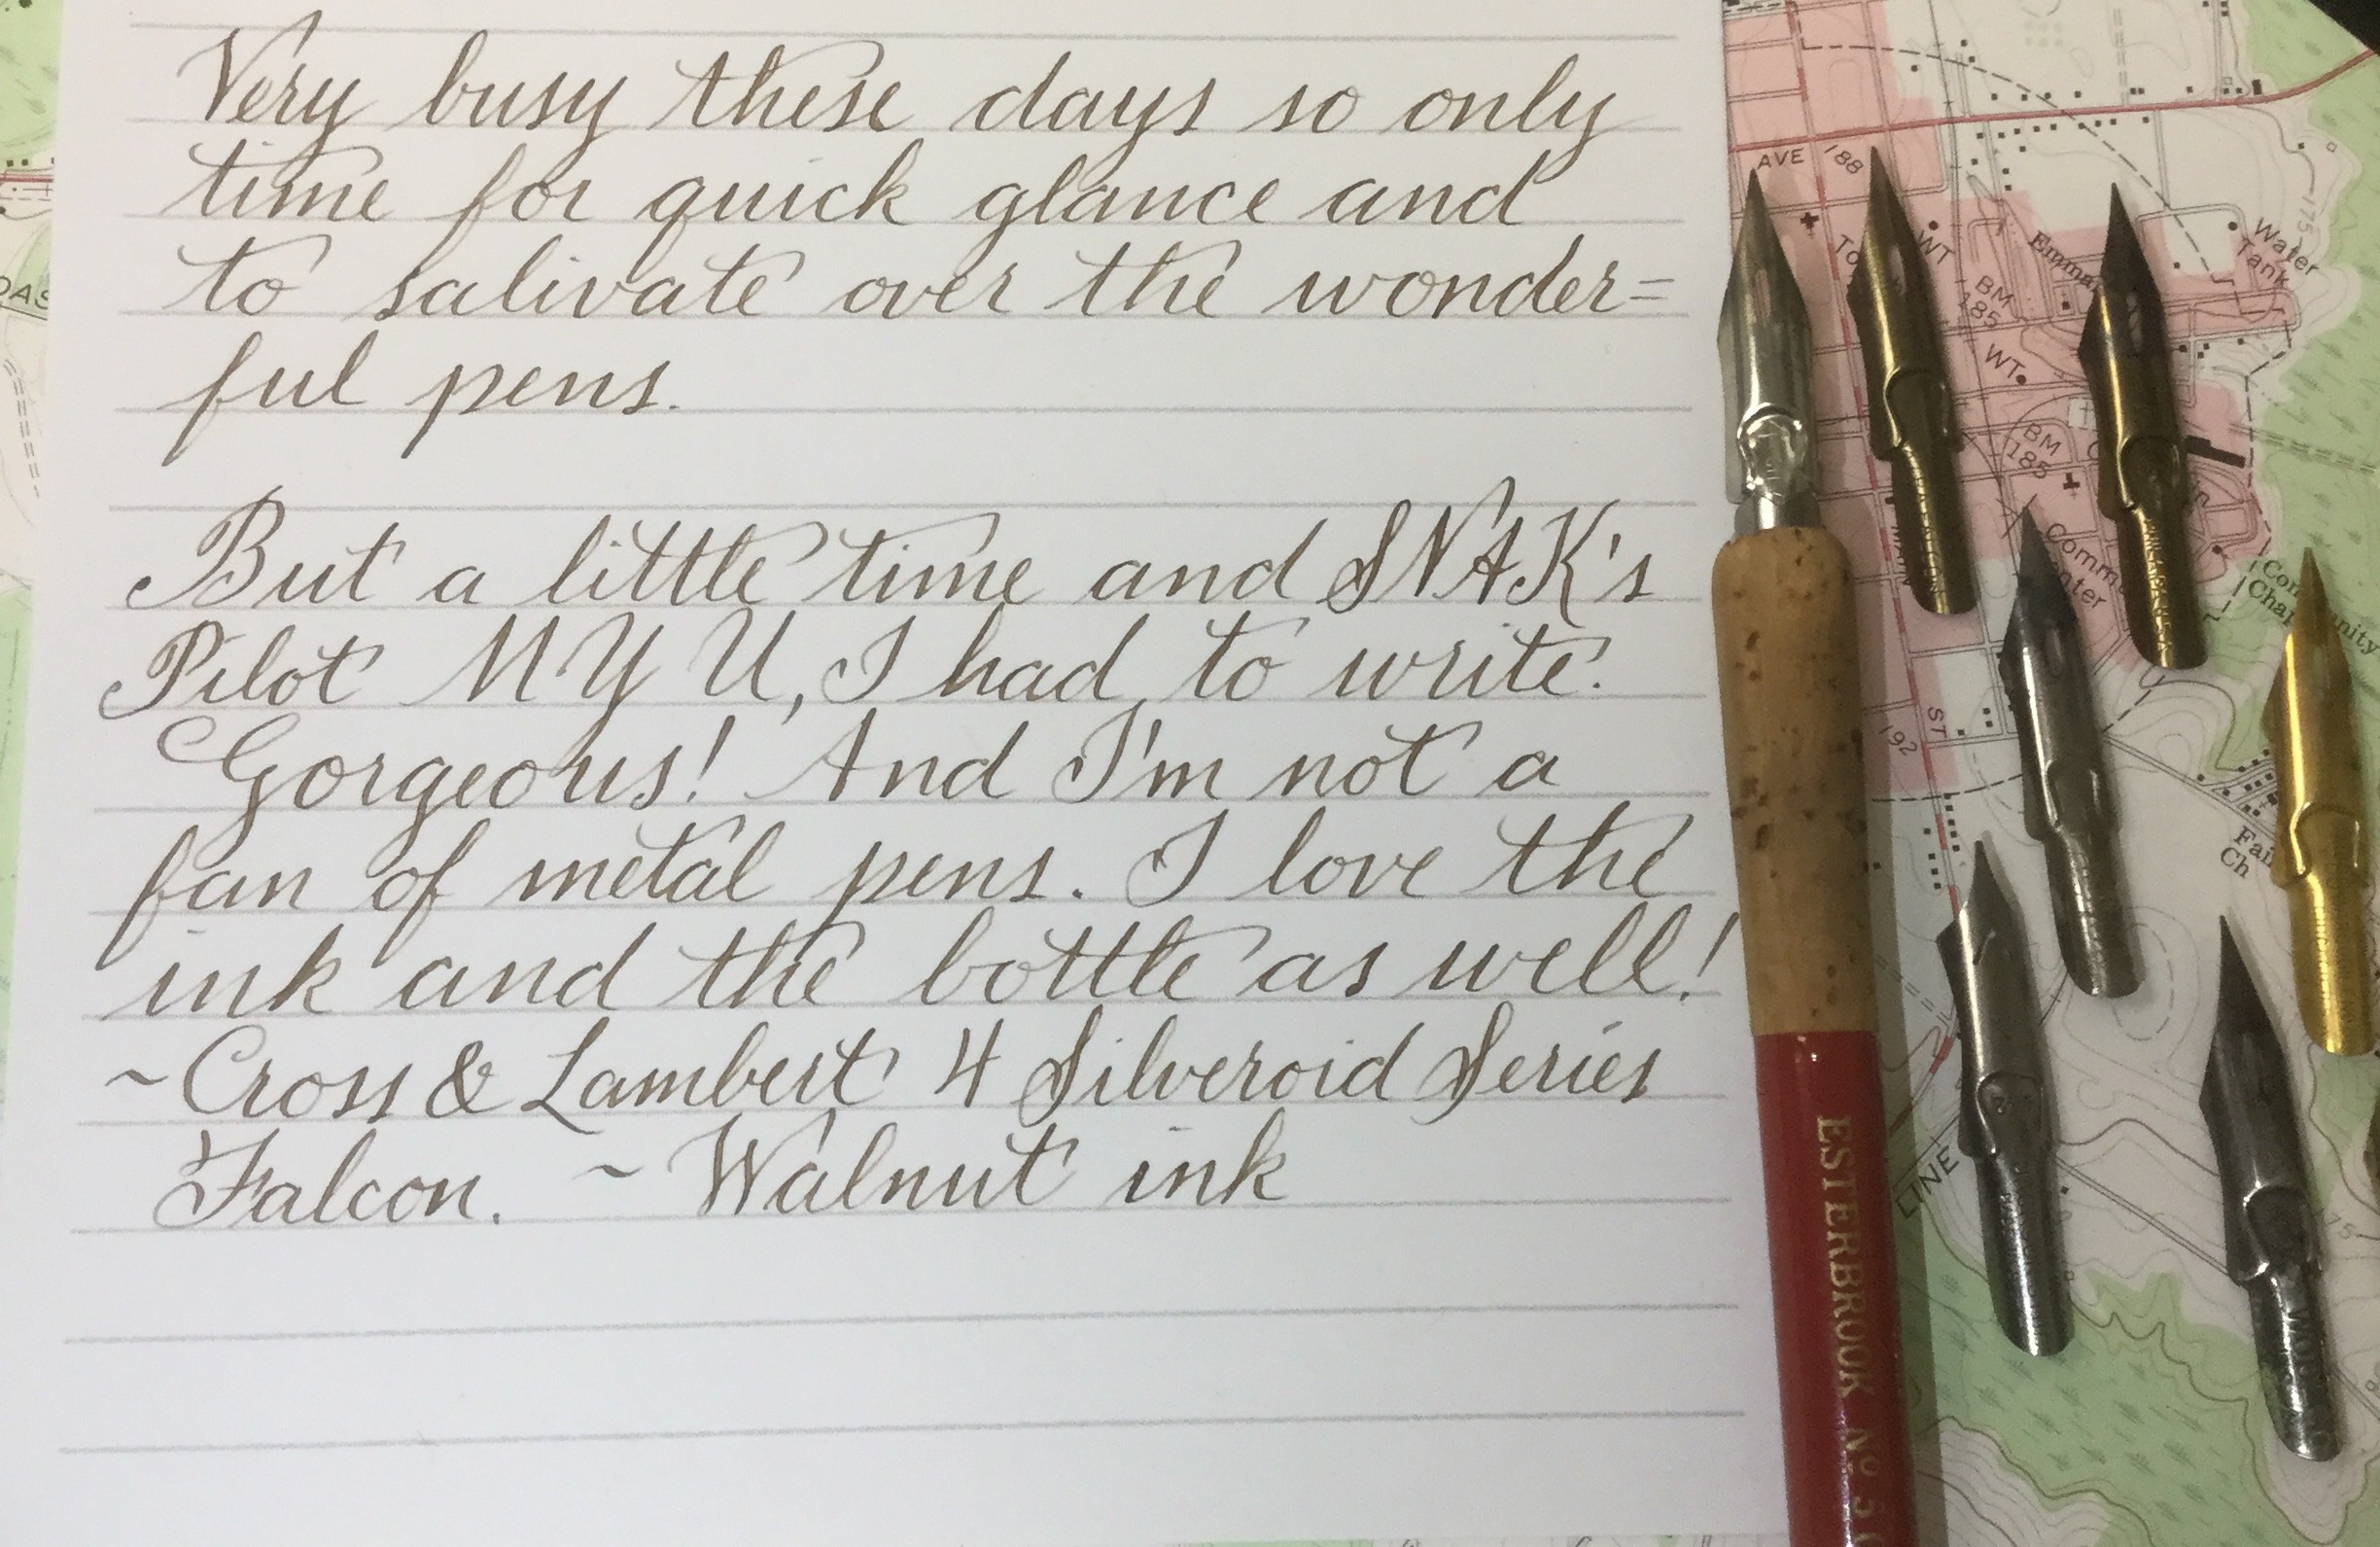 Very busy these days so only
time for quick glance and
to salivate over the wonder=
ful pens.
But a little time and SNAK's
Pilot MYU, I had to write.
Gorgeous! And I'm not a
fan of metal pens. I love the
ink and the bottle as well!
~Cross & Lambert 4 Silveroid Series
Falcon. ~ Walnut ink
ESTERBROOK Nº 5
AVE
188
WT
BM
185
WT
BM
185
Water
Tank
175
ST
192
LINE
Ch